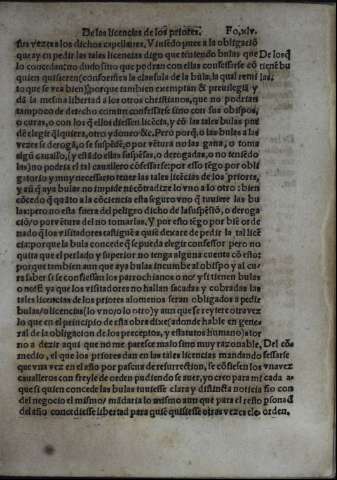 De las licencias de los priores. Fo.xlv.
sus vezes a los dichos capellanes. Viniédo pues a la obligació
que ay en pedir las tales licencias digo que teniendo bulas que De los q̃
lo concedan: no dudo sino que podran con ellas confessarse cō tienē bu
quien quisieren (conforme a la clausula de la bula, la qual remi las.
to que se vea bien) porque tambien exemptan & preuilegiā y
dā la mesma libertad a los otros christianos, que no podrian
tampoco de derecho comun confessarse sino con sus obispos,
o curas, o con los q̃ ellos diessen licēcia, y cō las tales bulas pue
dē elegir q̃lquiera, otro ydoneo &c. Pero porq̃, o las bulas a las
vezes se derogā, o se suspēdē, o por vētura no las gana, o toma
algū cauallo, (y estādo ellas suspēsas, o derogadas, o no teniēdo
las) no podria el tal cauallero cōfessarse: por esso tēgo por obli
gatorio y muy necessario tener las tales licēcias de los priores,
y aū q̃ aya bulas no impide ni cōtradize lo vno a lo otro: bien
cōcedo q̃ quāto a la cōciencia esta seguro vno q̃ tuuiere las bu
las: pero no esta fuera del peligro dicho de la suspēsiō, o deroga
ciō, o por vētura del no tomarlas. Y por esso tēgo por biē or de
nado q̃ los visitadores castiguē a quiē dexare de pedir la tal licē
cia: porque la bula concede q̃ se pueda elegir confessor pero no
quita que el perlado y superior no tenga alguna cuenta cō esso:
porque tambien aun que aya bulas incumbe al obispo y al cu
ra saber si se confiessan los parrochianos o no: y si tienen bulas
o no: Y assi ya que los visitadores no hallan sacadas y cobradas las
tales licencias de los priores alomenos seran obligados a pedir
bulas/o licencias (lo vno/o lo otro) y aun que se reytere otra vez
lo que en el principio de esta obra dixe (adonde hable en gene/
ral de la obligacion de los preceptos, y estatutos humano) tor
no a dezir aqui que no me parece malo sino muy razonable, Del cō
medio, el que los priores dan en las tales licencias mandando fessarse
que vna vez en el año por pascua de resurrection, se cōfiesen los vna vez
caualleros con freyle de orden pudiendo se auer, yo creo para mi cada a
que si quien concede las bulas tuuiesse clara y distincta noticia ño con
del negocio el mismo/ mādaria lo mismo aun que para el resto psona d̃
del año concediesse libertad para quiē quisiesse otras vezes ele orden.